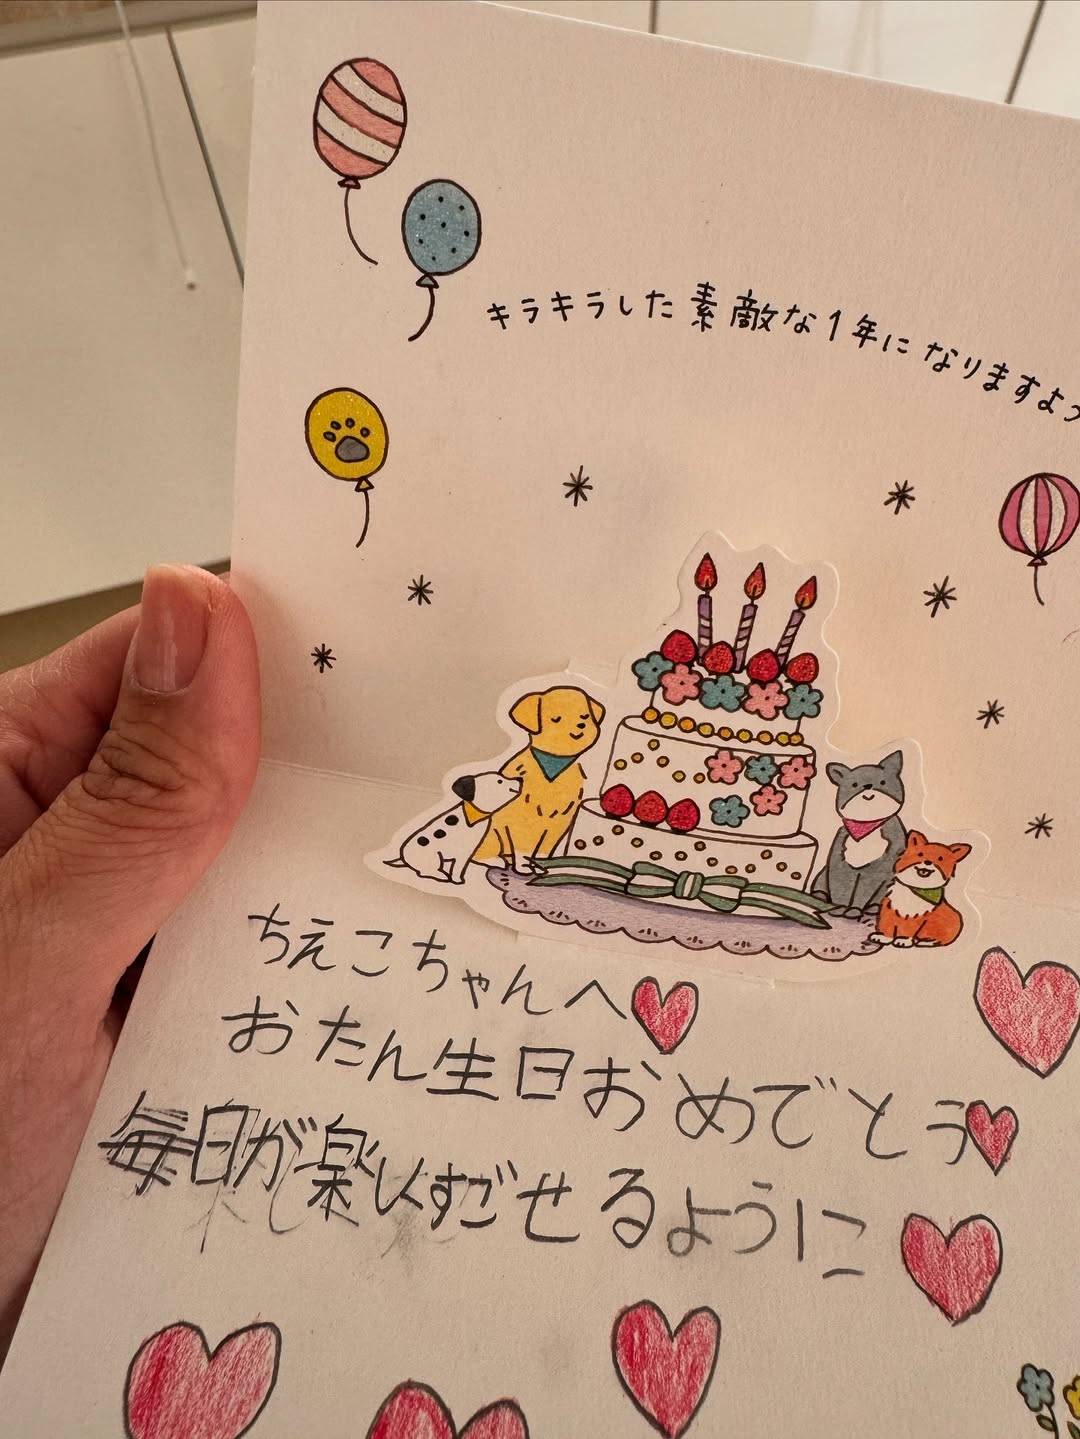 キラキラした素敵な1年になりますよう
ちえこちゃんへ
おたん生日おめでとう
毎日が楽しくすごせるように